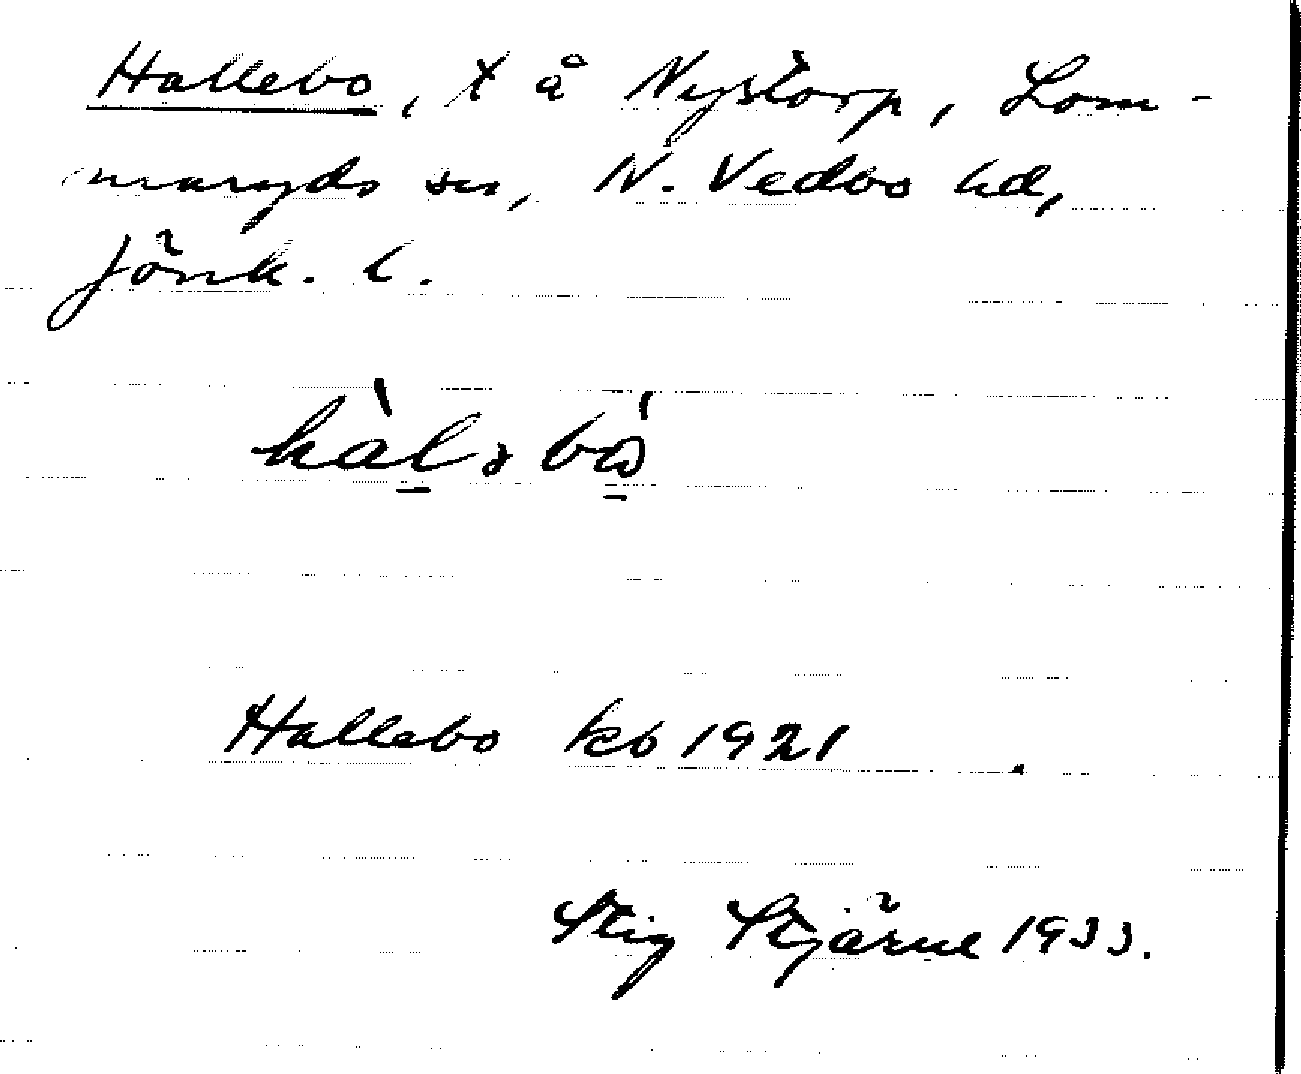 Hallebo, X å Nystorp, Lom-
maryds sn, N. Vedbo hd,
Jönk. l.
hàləbó
Hallebo kb 1921
Stig Stjärne 1933.